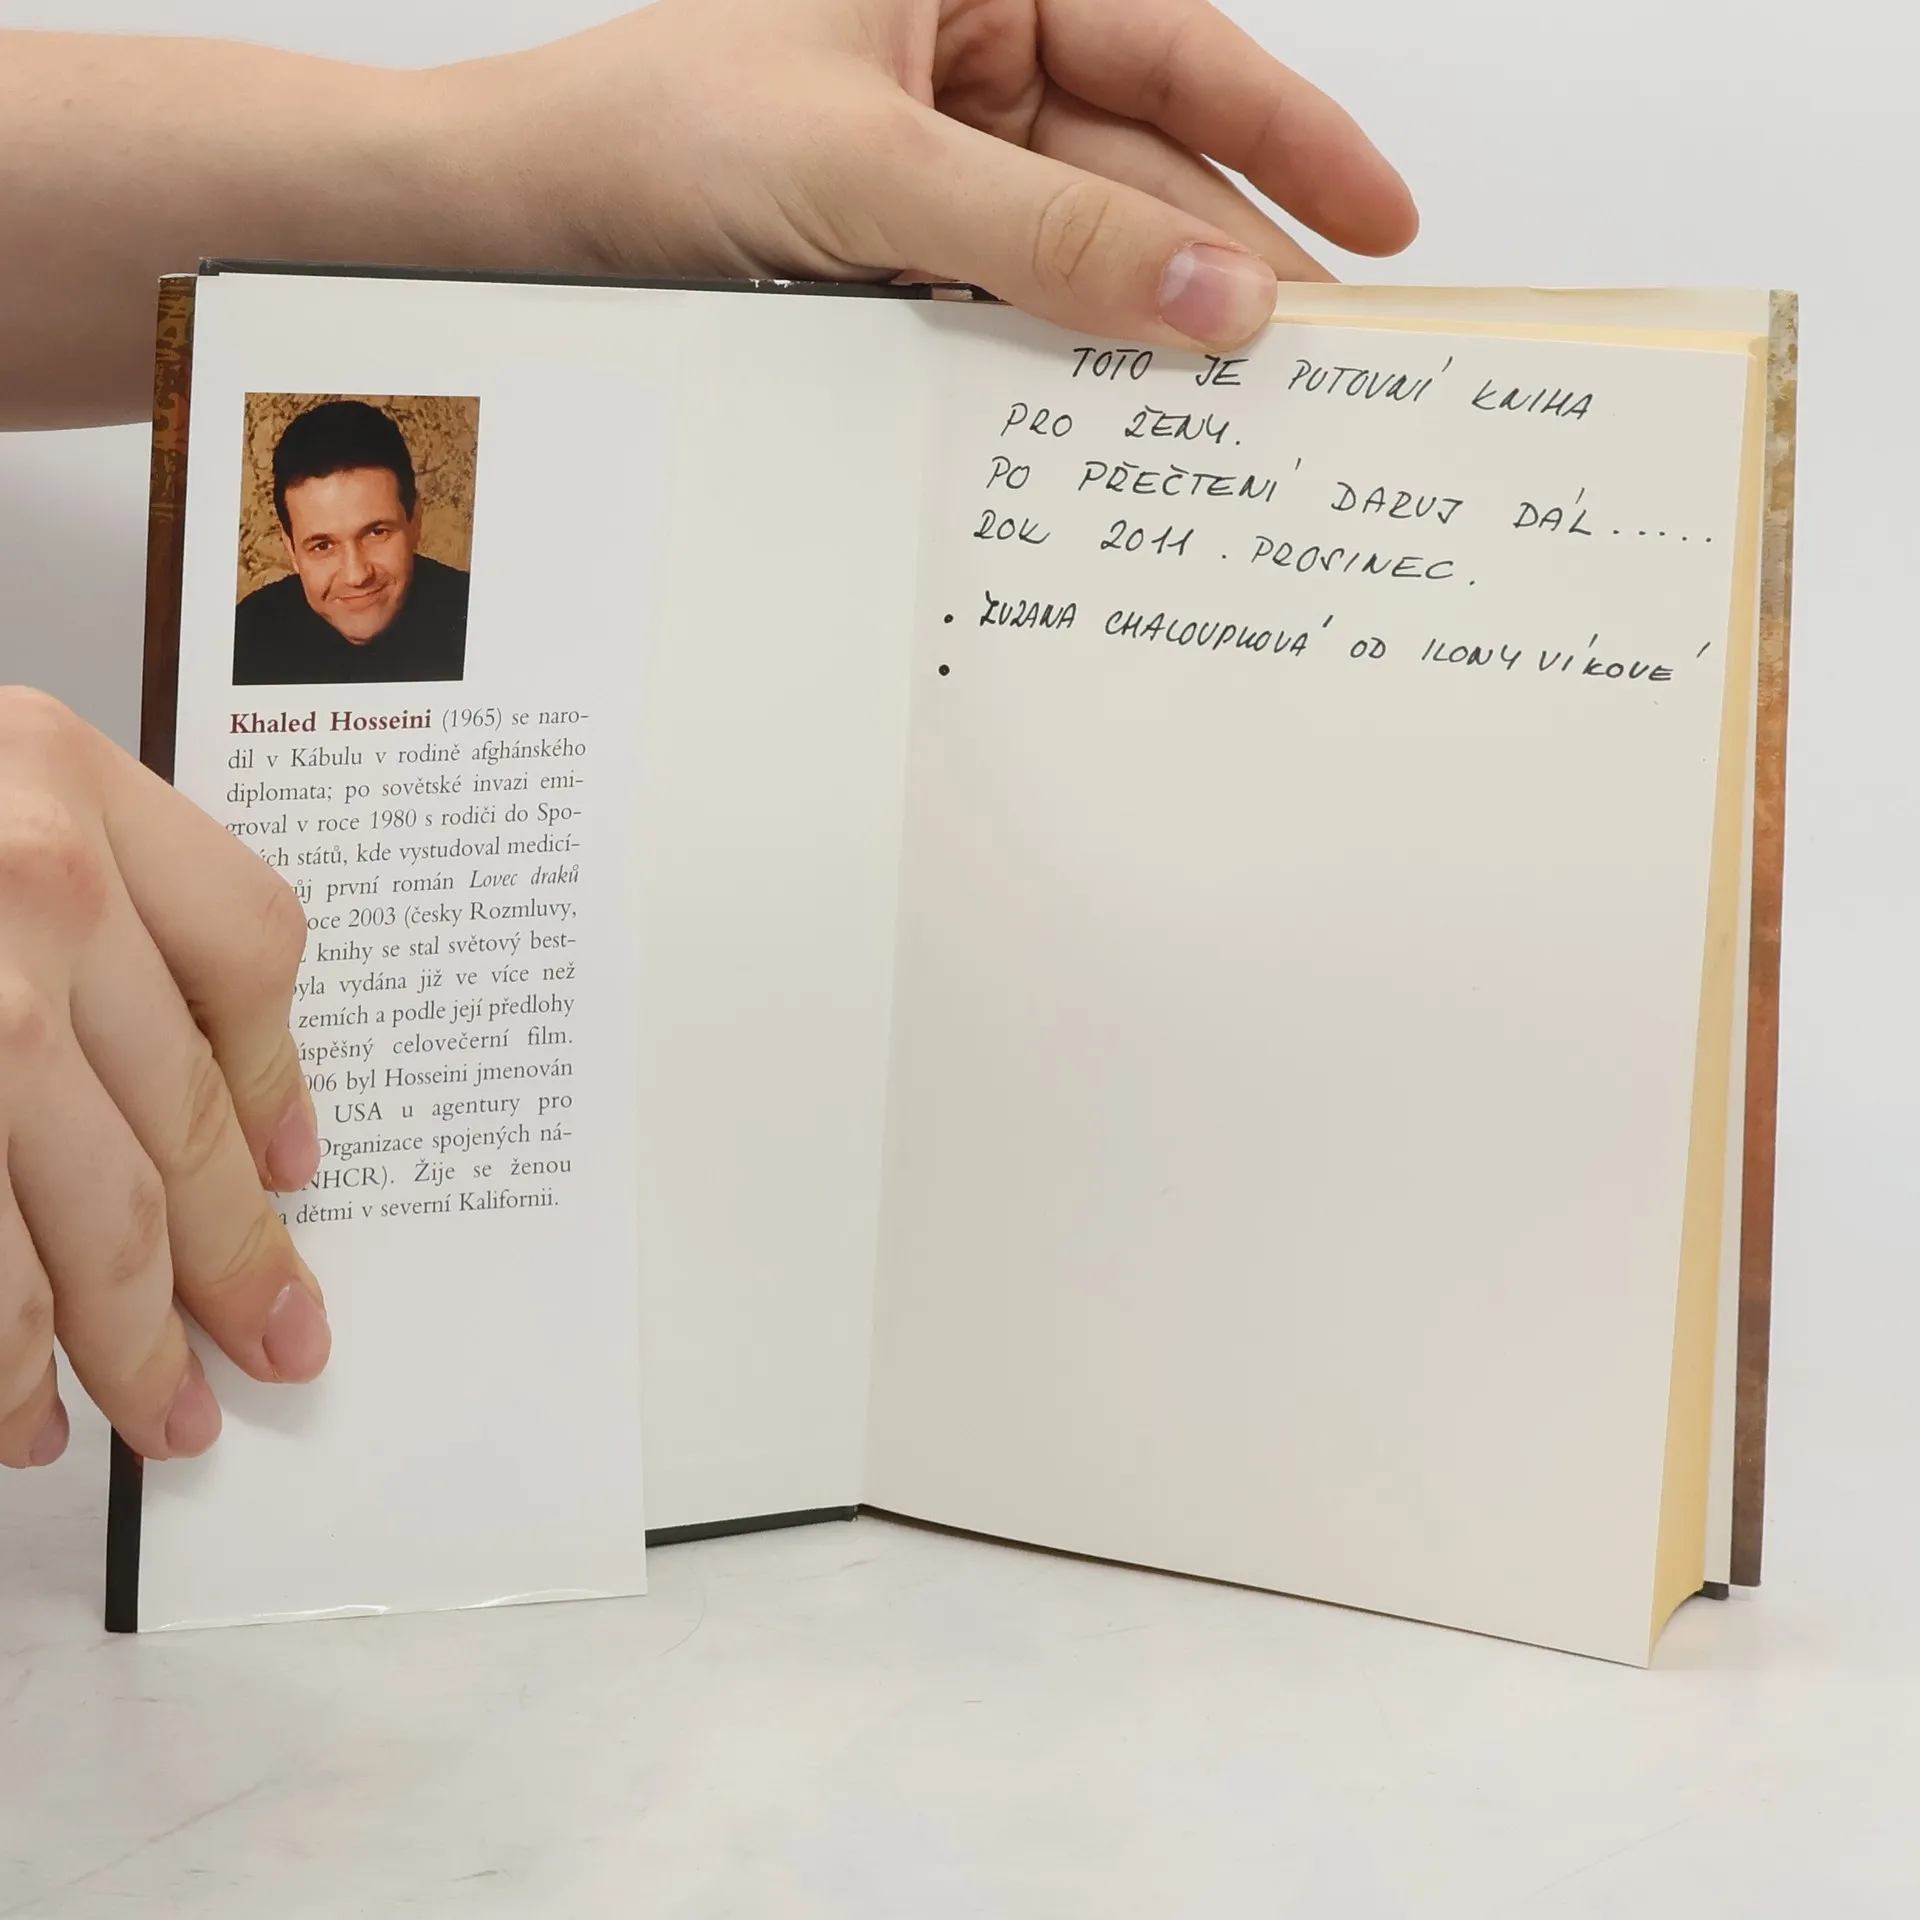 Khaled Hosseini (1965) se naro-
dil v Kábulu v rodině afghánského
diplomata; po sovětské invazi emi-
groval v roce 1980 s rodiči do Spo-
států, kde vystudoval medicí-
první román Lovec draků
2003 (česky Rozmluvy,
knihy se stal světový best-
vydána již ve více než
zemích a podle její předlohy
celovečerní film.
byl Hosseini jmenován
USA u agentury pro
Organizace spojených ná-
Žije se ženou
a dětmi v severní Kalifornii.
TOTO JE PUTOVNÍ KNIHA
PRO ŽENY.
PO PŘEČTENÍ DARUJ DÁL.....
ROK 2011. PROSINEC.
• ZUZANA CHALOUPKOVÁ OD ILONY VÍKOVÉ
•